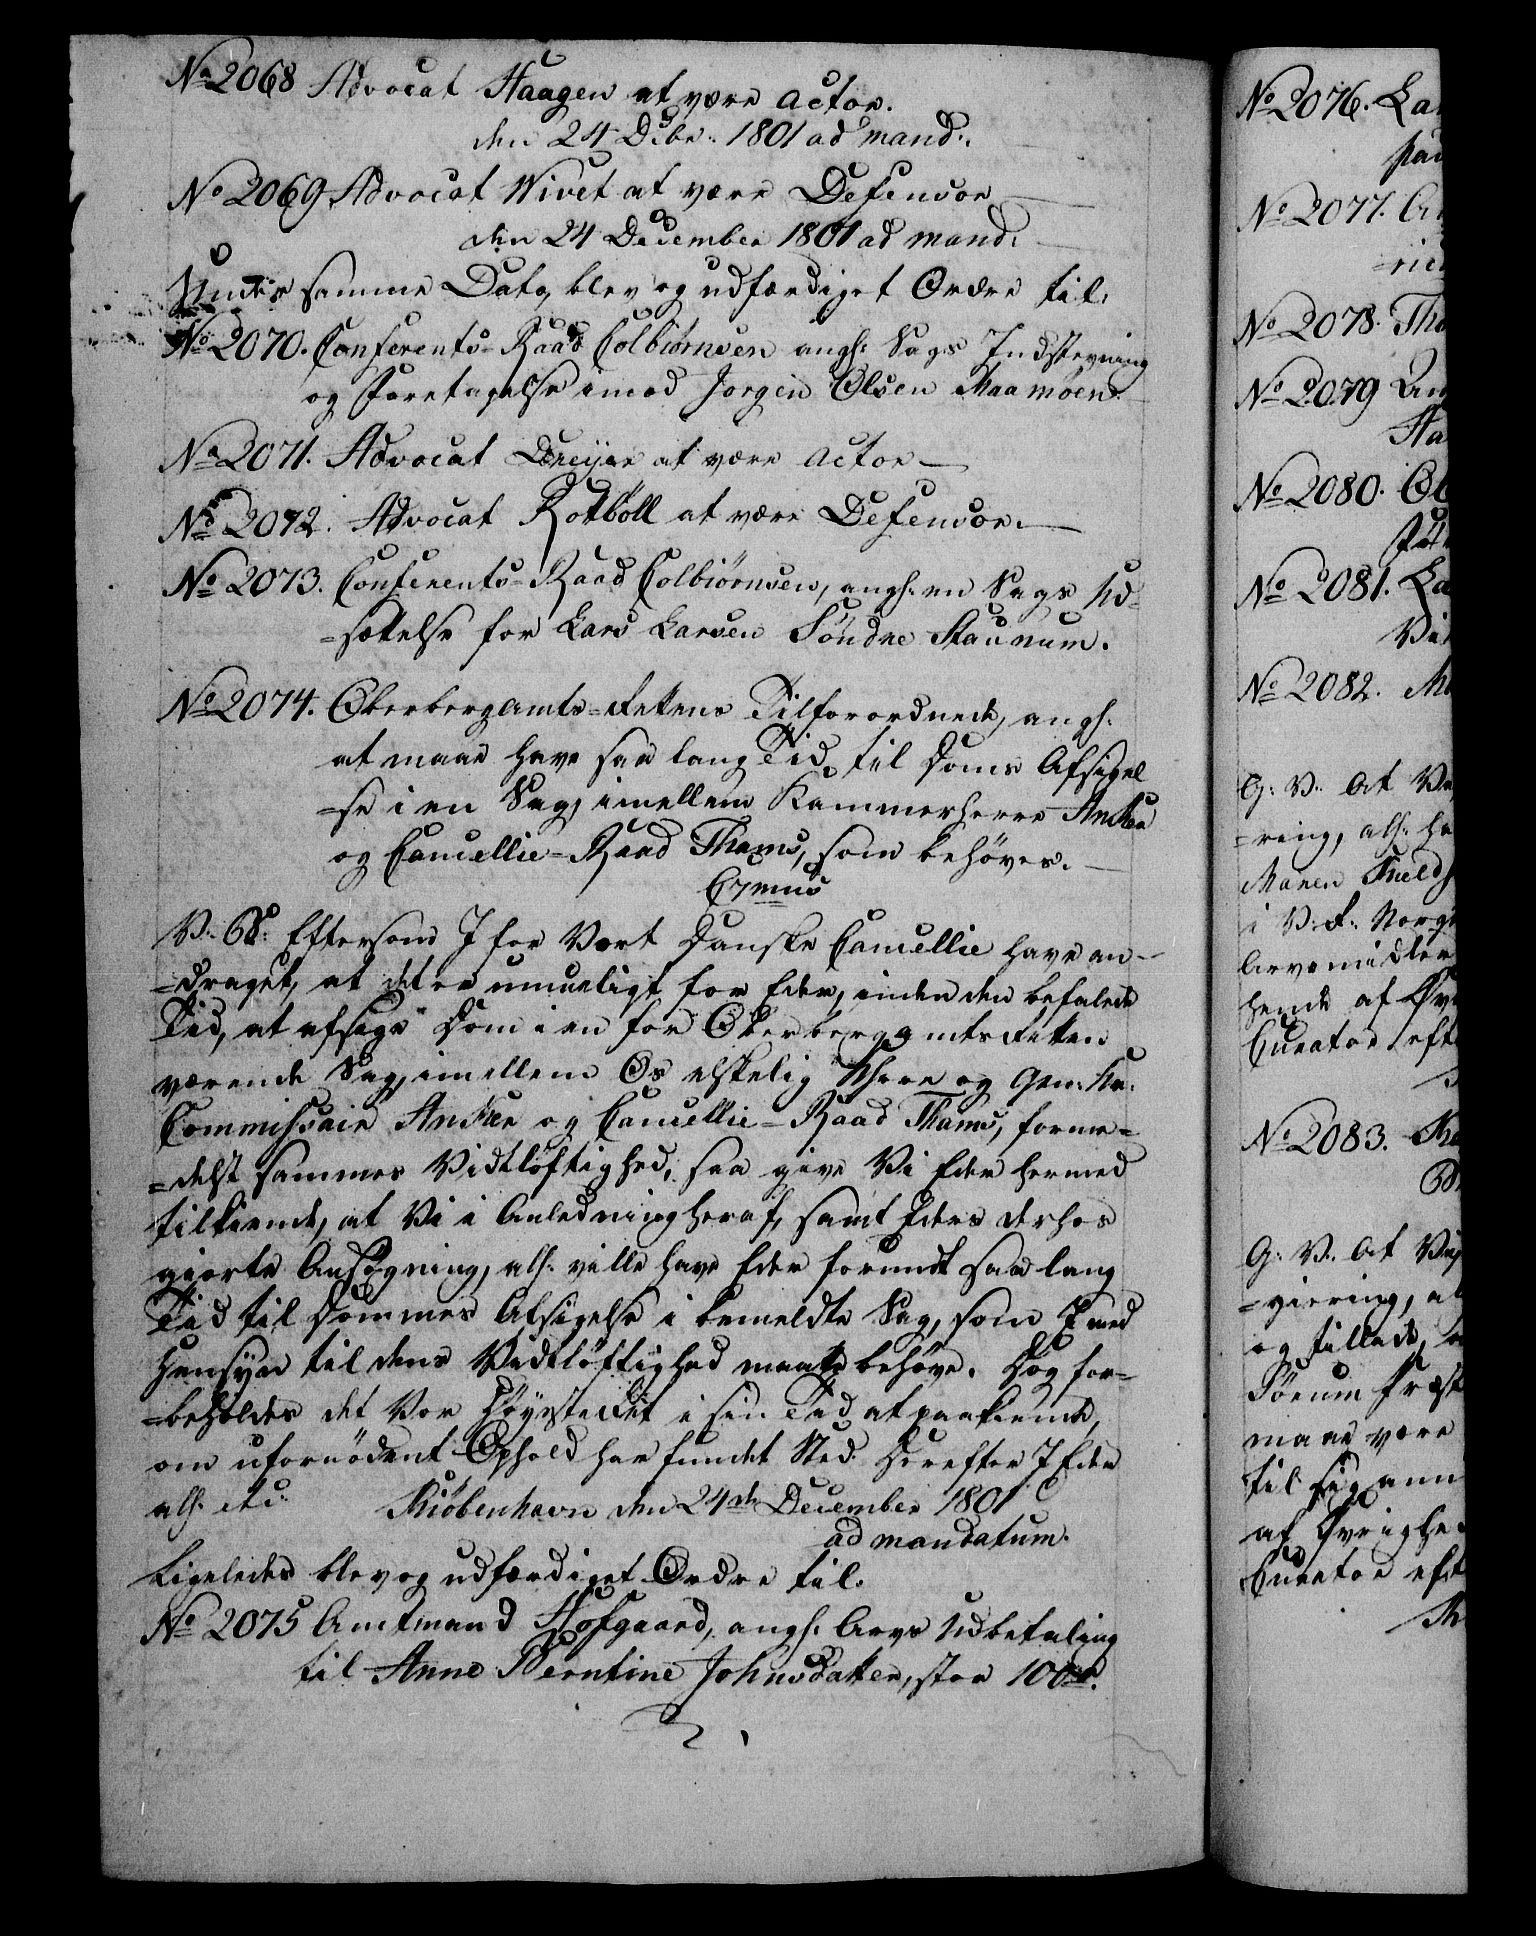 No 2068 Advocat Haagen at være Actor.
den 24 Dcbr: 1801 ad mand:
No 2069 Advocat Wivet at være Defensor
den 24 December 1801 ad mand:
Under samme Dato, blev og udfærdiget Ordre til:
No 2070. Conferents-Raad Colbiørnsen angl: Sags Indstevning
og Foretagelse imod Jorgen Olsen Maamoen.
No 2071. Advocat Dreijer at være Actor
No 2072. Advocat Rotböll at være Defensor.
No 2073. Conferents-Raad Colbiørnsen, angl: en Sags Ud-
=sættelse for Lars Larsen Søndre Staurum.
No 2074. Oberbergamts-Rettens Tilforordnede, angl:
at maae have saa lang Tid til Doms Afsigel
=se i en Sag, imellem Kammerherre Anker
og Cancellie-Raad Thams, som behøves.
V: G: Eftersom I for Vort Danske Cancellie have an-
=draget, at det er umueligt for Eder, inden den befalede
Tid, at afsige Dom i en for Oberbergamtsretten
værende Sag, imellem Os elskelig Khere og Gen: Kr:
Commissair Anker og Cancellie-Raad Thams, forme=
=delst sammes Vidtløftighed, saa give Vi Eder hermed
tilkiende, at Vi i Anledning heraf, samt Eders derhos
giorte Ansøgning, all: ville have Eder forundt saa lang
Tid til Dommes Afsigelse i bemeldte Sag, som I med
Hensyn til dens Vidtløftighed maatte behøve. Dog for-
=beholdes det Vor Høysteret i sin Tid at paakiende,
om ufornødent Ophold har fundet Sted. Derefter I Eder
all: etc: Kiøbenhavn den 24de December 1801
ad mandatum.
Ligeledes blev og udfærdiget Ordre til:
No 2075 Amtmand Hofgaard, angl: Arvs Udbetaling
til Anne Berntine Johnsdatter, stor 100 rd.
No 2076. La
No 2077.
No 2078. Tho
No 2079
Ha
No 2080. Ol
No 2081. La
No 2082.
G: V: At
=ring, all: ha
Maren
i V: R: Norge
Arvemidler
hende af Øv
Curator eft
No 2083.
G: V: At
=giering, al
og tillade,
Præst
maae være
til sig ann
af Øvrighe
Curator eft